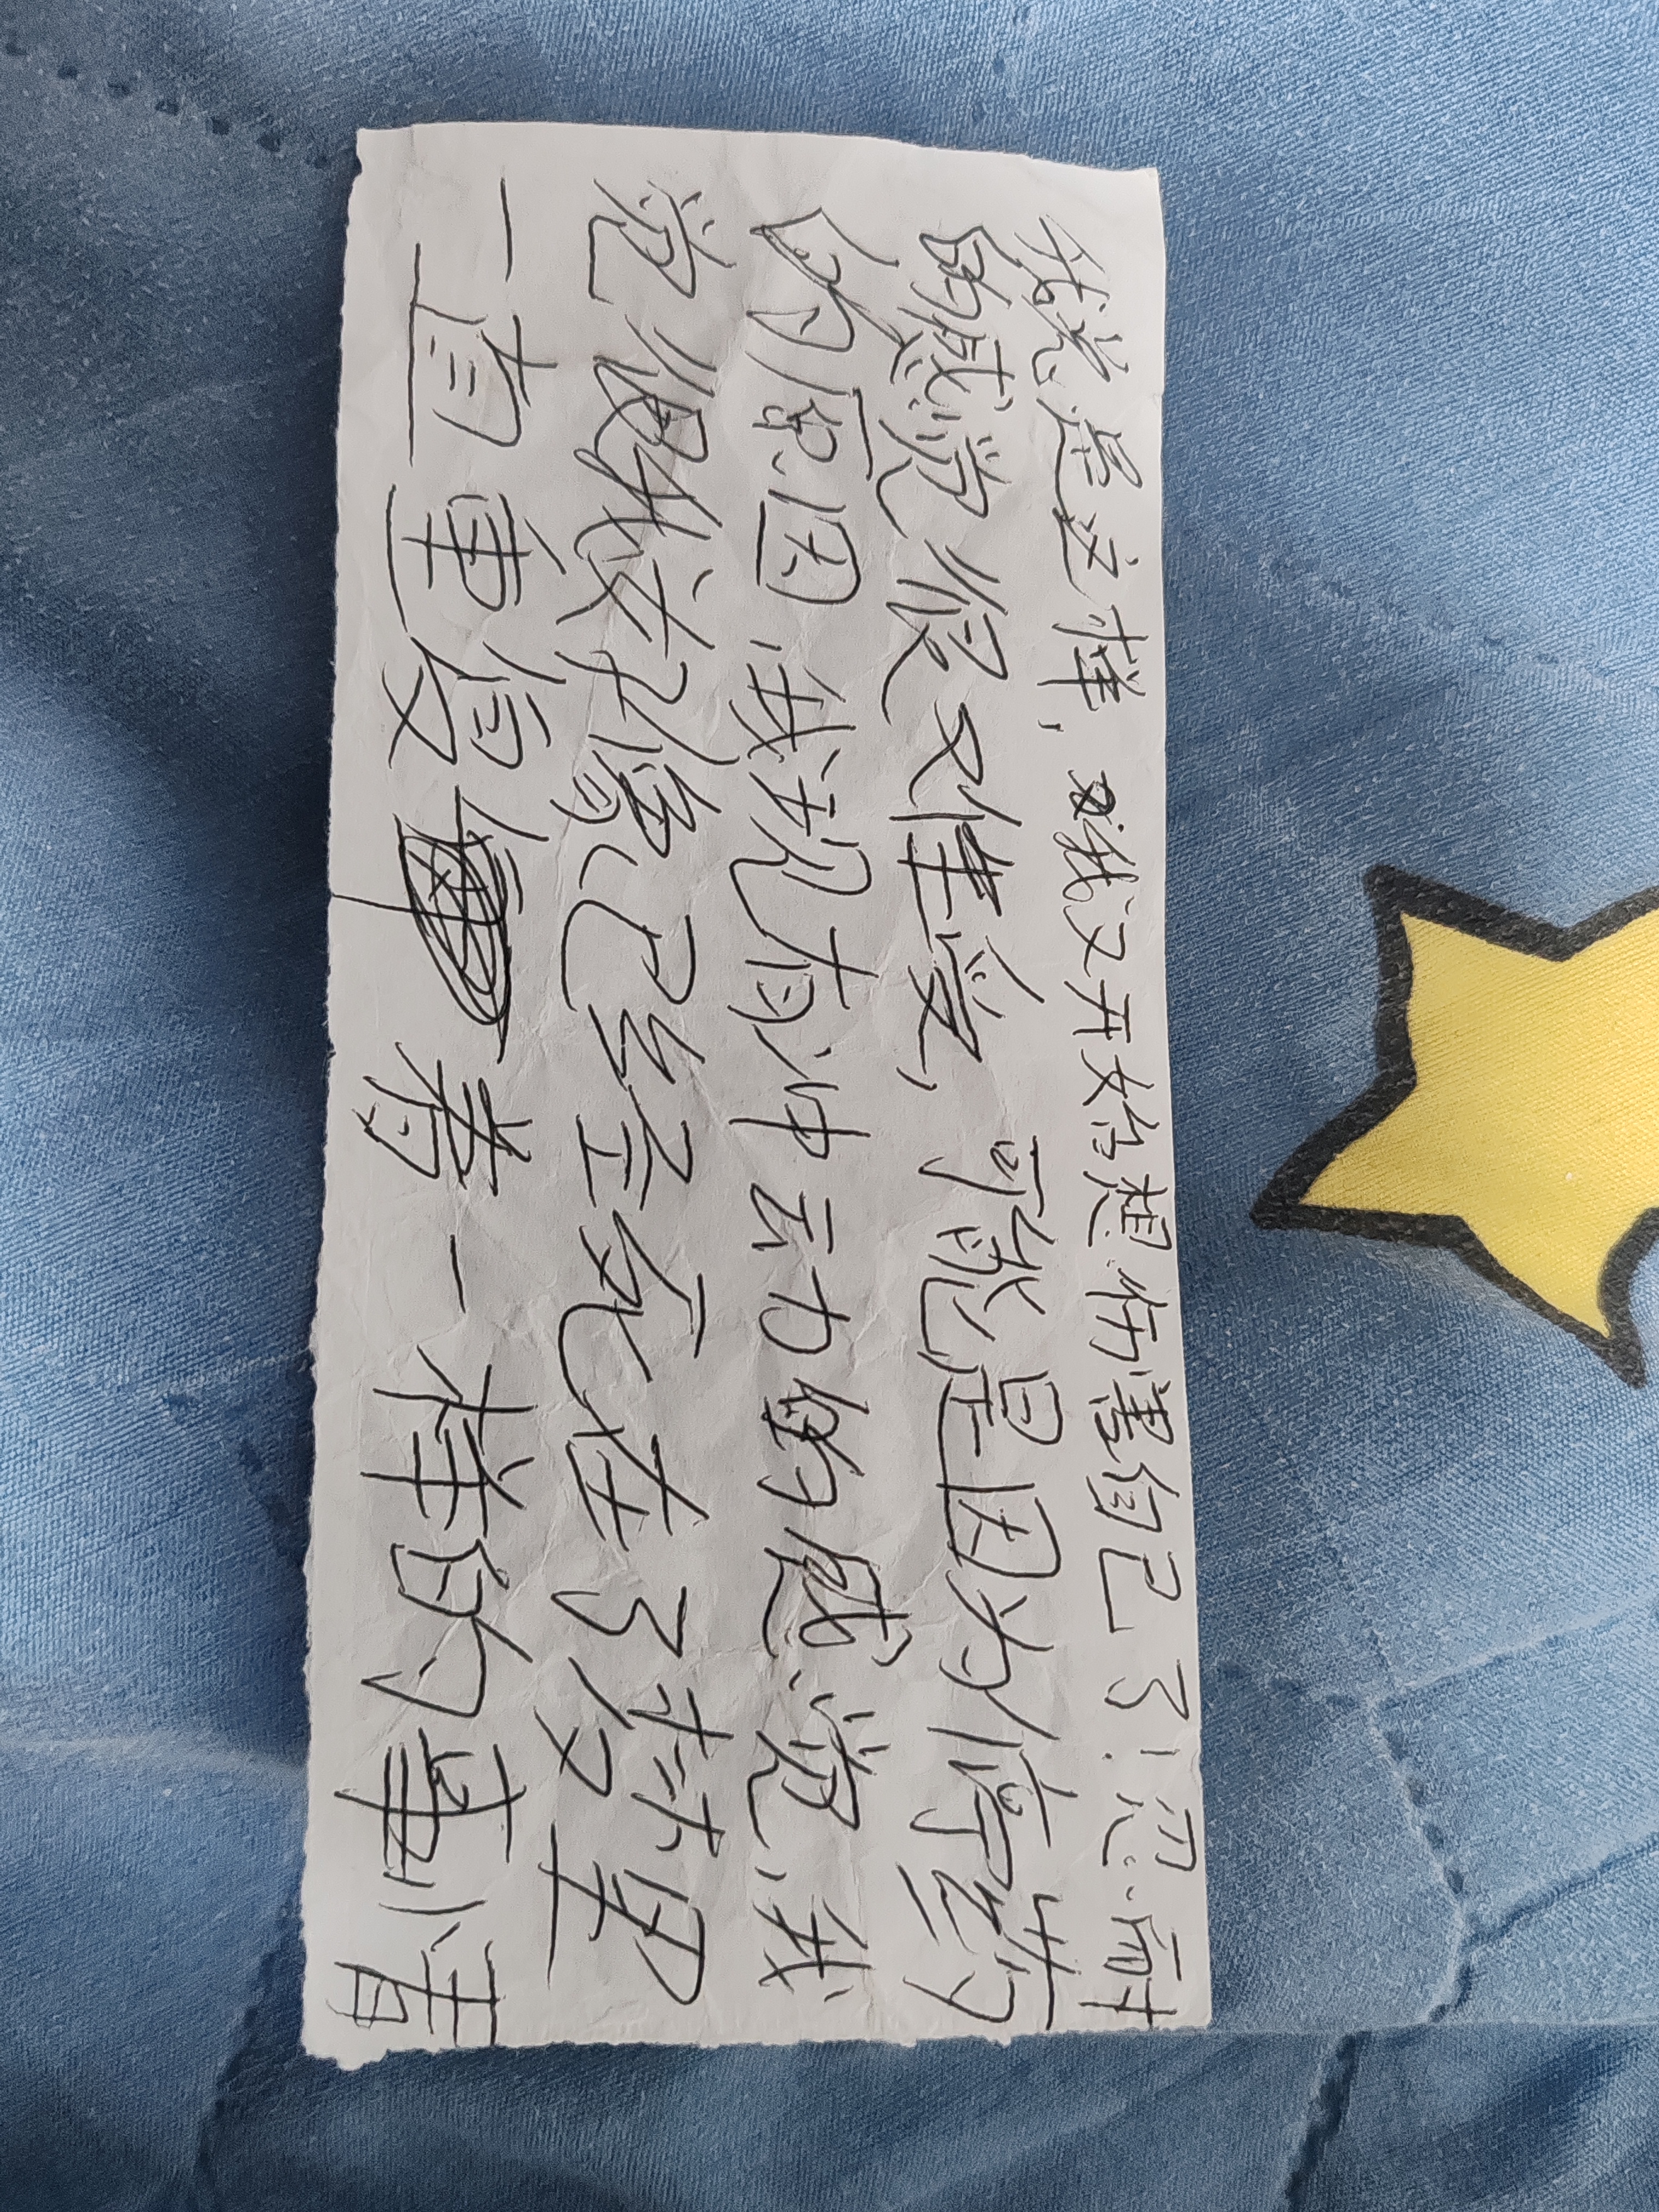 我总是这样，我又开始想伤害自己了！忍耐
的感觉很难受，可能是因为停药
的原因，我现有冲动的感觉，我
觉得我好像已经死在了那里
一直重复着一样的事情